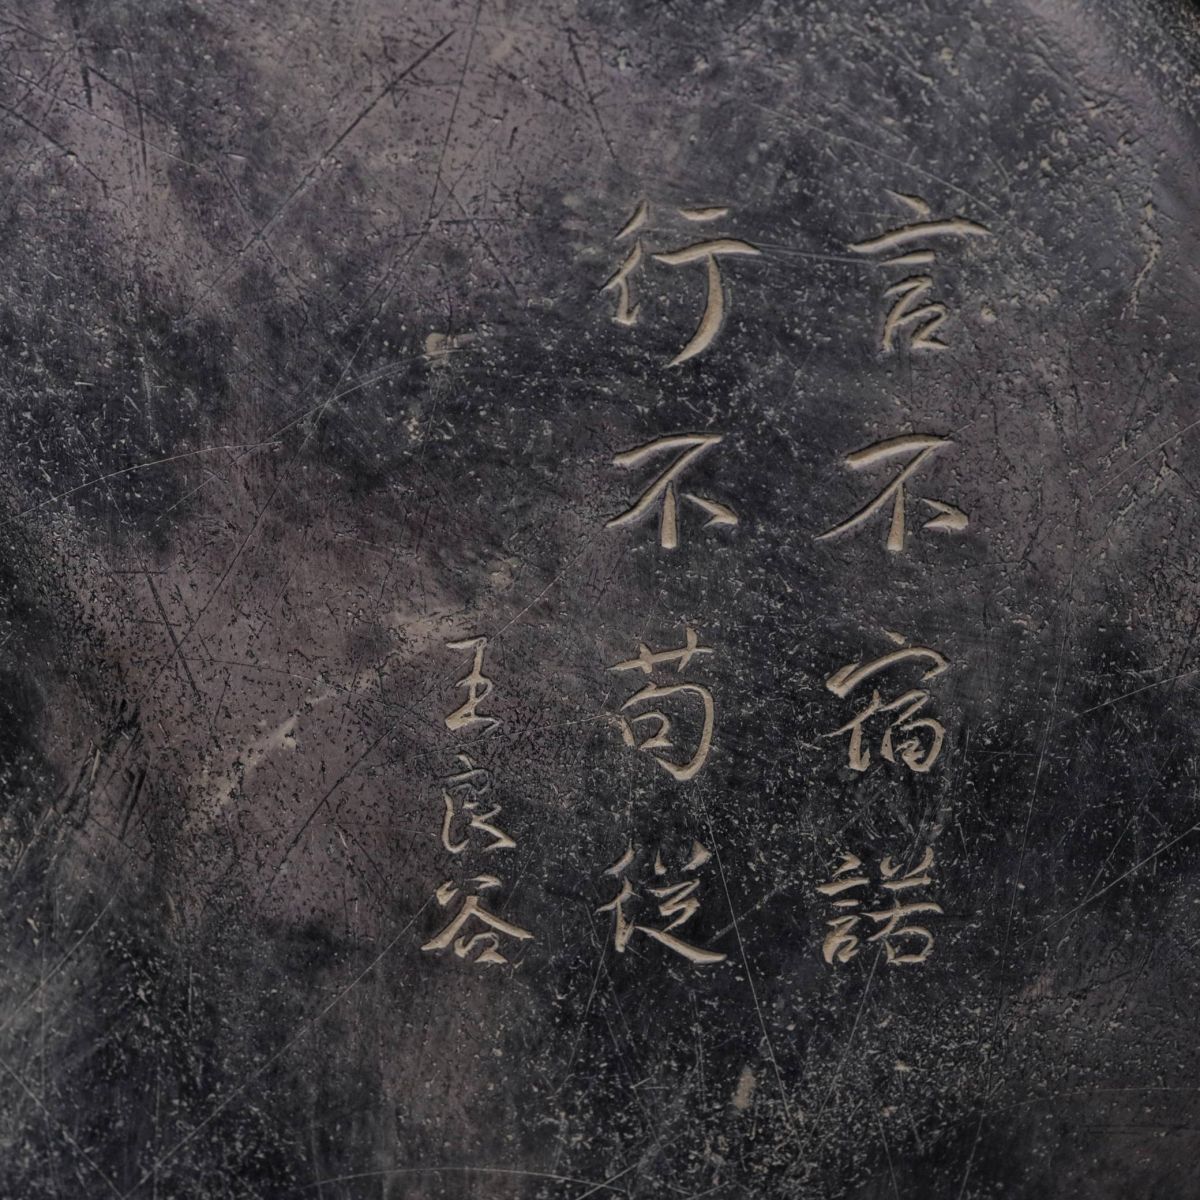 言不宿諾
行不苟從
王良谷